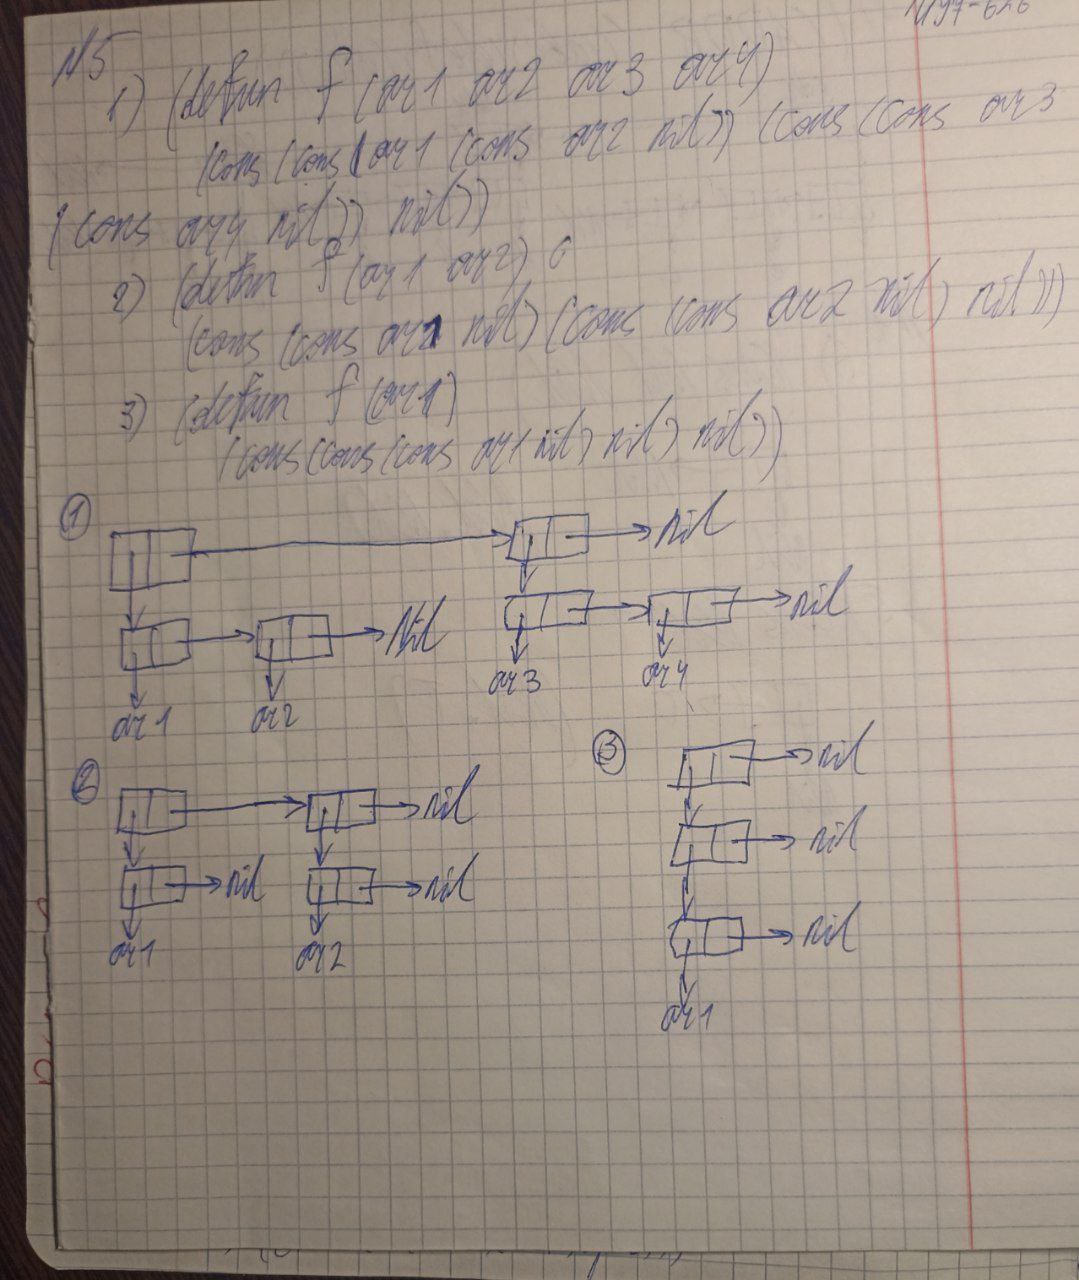 N5
1) (defun f (ar1 ar2 ar3 ar4)
(cons (cons (ar1 (cons ar2 nil)) (cons (cons ar3
(cons ar4 nil)) nil))
2) (defun f (ar1 ar2)
(cons (cons ar1 nil) (cons (cons ar2 nil) nil)))
3) (defun f (ar1)
(cons (cons (cons ar1 nil) nil) nil))
1
nil
Nil
nil
ar1 ar2
ar3 ar4
2
nil
nil nil
ar1 ar2
3
nil
nil
nil
ar1